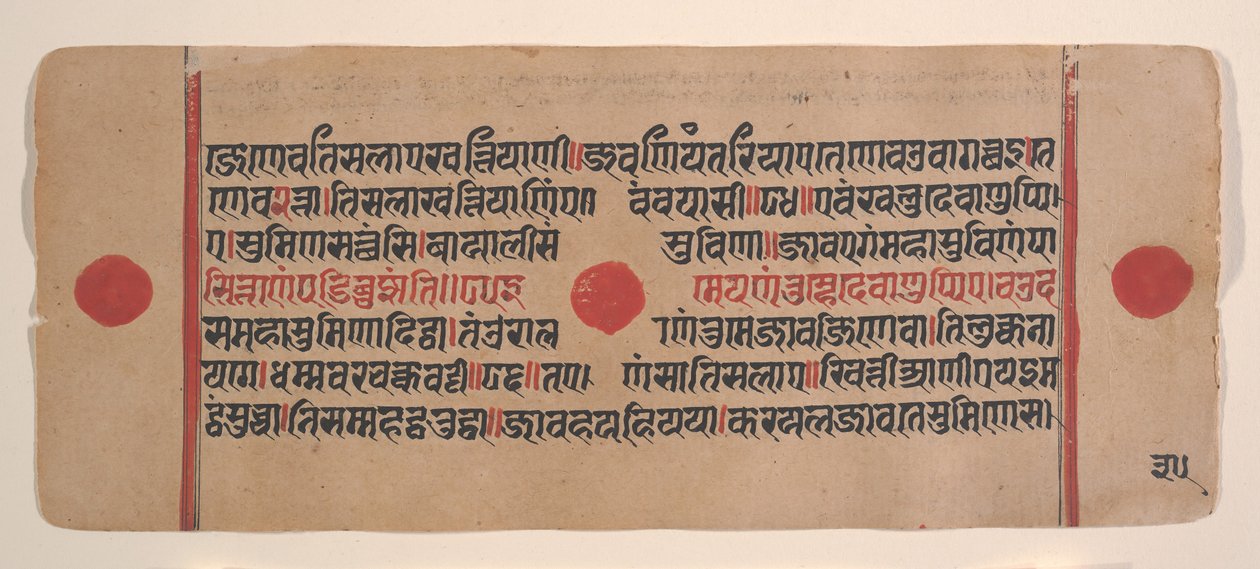 ज्जेणेव तिसलाए खत्तियाणी॥जवणियंतरिया तेणेव उवागच्छइ।ते
णेव २त्ता।तिसलाखत्तियाणिं ए वं वयासी॥८४॥एवं खलु देवाणुप्पि
ए।सुमिणसत्थंसि।बायालीसं सुविणा॥जाव एगं महासुविणं पा
सित्ताणं पडिबुज्झंति॥८५ इमेयणं तुम्हे देवाणुप्पिए।चउद
समहासुमिणा दिट्ठा।तं उराला णं तुमे जाव जिणे वा।तिलुक्कना
यगे।धम्मवरचक्कवट्टी॥८६॥तए णं सा तिसलाए॥खित्तीआणी एयमं
ट्ठं सुच्चा।निसम्म हट्ठतुट्ठा॥जाव हयहियया।करयल जाव ते सुमिणे स
३५